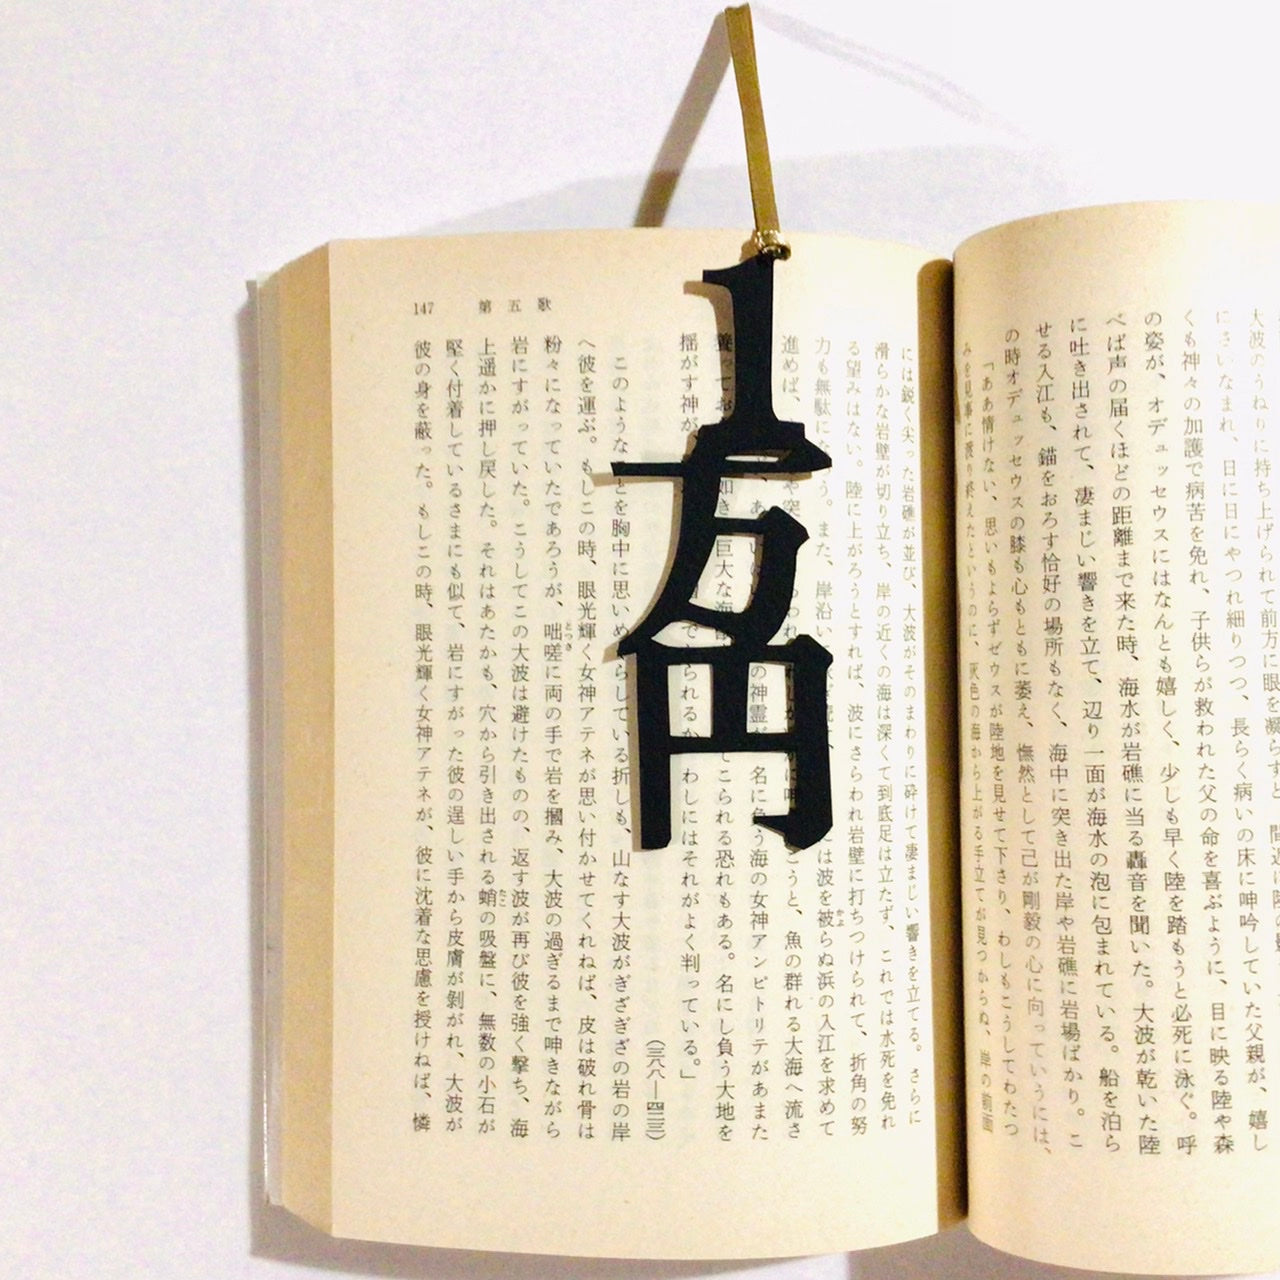 大波のうねりに持ち上げられて前方に眼を凝らすと、間近に陸
にさいなまれ、日に日にやつれ細りつつ、長らく病いの床に呻吟していた父親が、嬉し
くも神々の加護で病苦を免れ、子供らが救われた父の命を喜ぶように、目に映る陸や森
の姿が、オデュッセウスにはなんとも嬉しく、少しも早く陸を踏もうと必死に泳ぐ。呼
べば声の届くほどの距離まで来た時、海水が岩礁に当る轟音を聞いた。大波が乾いた陸
に吐き出されて、凄まじい響きを立て、辺り一面が海水の泡に包まれている。船を泊ら
せる入江も、錨をおろす恰好の場所もなく、海中に突き出た岸や岩礁に岩場ばかり。こ
の時オデュッセウスの膝も心もともに萎え、憮然として己が剛毅の心に向っていうには、
「ああ情けない、思いもよらずゼウスが陸地を見せて下さり、わしもこうしてわたつ
みを見事に渡り終えたというのに、灰色の海から上がる手立てが見つからぬ、岸の前面
には鋭く尖った岩礁が並び、大波がそのまわりに砕けて凄まじい響きを立てる。さらに
滑らかな岩壁が切り立ち、岸の近くの海は深くて到底足は立たず、これでは水死を免れ
る望みはない。陸に上がろうとすれば、波にさらわれ岩壁に打ちつけられて、折角の努
力も無駄になろう。また、岸沿い には波を被らぬ浜の入江を求めて
進めば、 や突 こうと、魚の群れる大海へ流さ
養っており 如き巨大な海 てこられる恐れもある。名にし負う大地を
揺がす神が、 わしにはそれがよく判っている。」
(三八八—四二三)
このようなことを胸中に思いめぐらしている折しも、山なす大波がぎざぎざの岩の岸
へ彼を運ぶ。もしこの時、眼光輝く女神アテネが思い付かせてくれねば、皮は破れ骨は
粉々になっていたであろうが、咄嗟に両の手で岩を摑み、大波の過ぎるまで呻きながら
岩にすがっていた。こうしてこの大波は避けたものの、返す波が再び彼を強く撃ち、海
上遥かに押し戻した。それはあたかも、穴から引き出される蛸の吸盤に、無数の小石が
堅く付着しているさまにも似て、岩にすがった彼の逞しい手から皮膚が剝がれ、大波が
彼の身を蔽った。もしこの時、眼光輝く女神アテネが、彼に沈着な思慮を授けねば、憐
147 第五歌
1万円